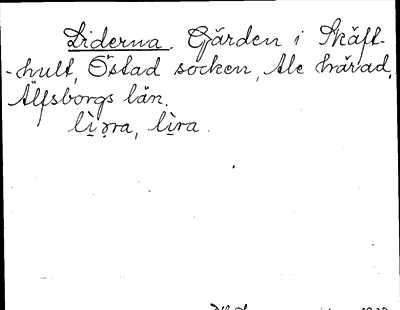 Liderna. Gärden i Skäft-
-hult, Östad socken, Ale härad,
Älfsborgs län.
lìn̥ra, lìra.